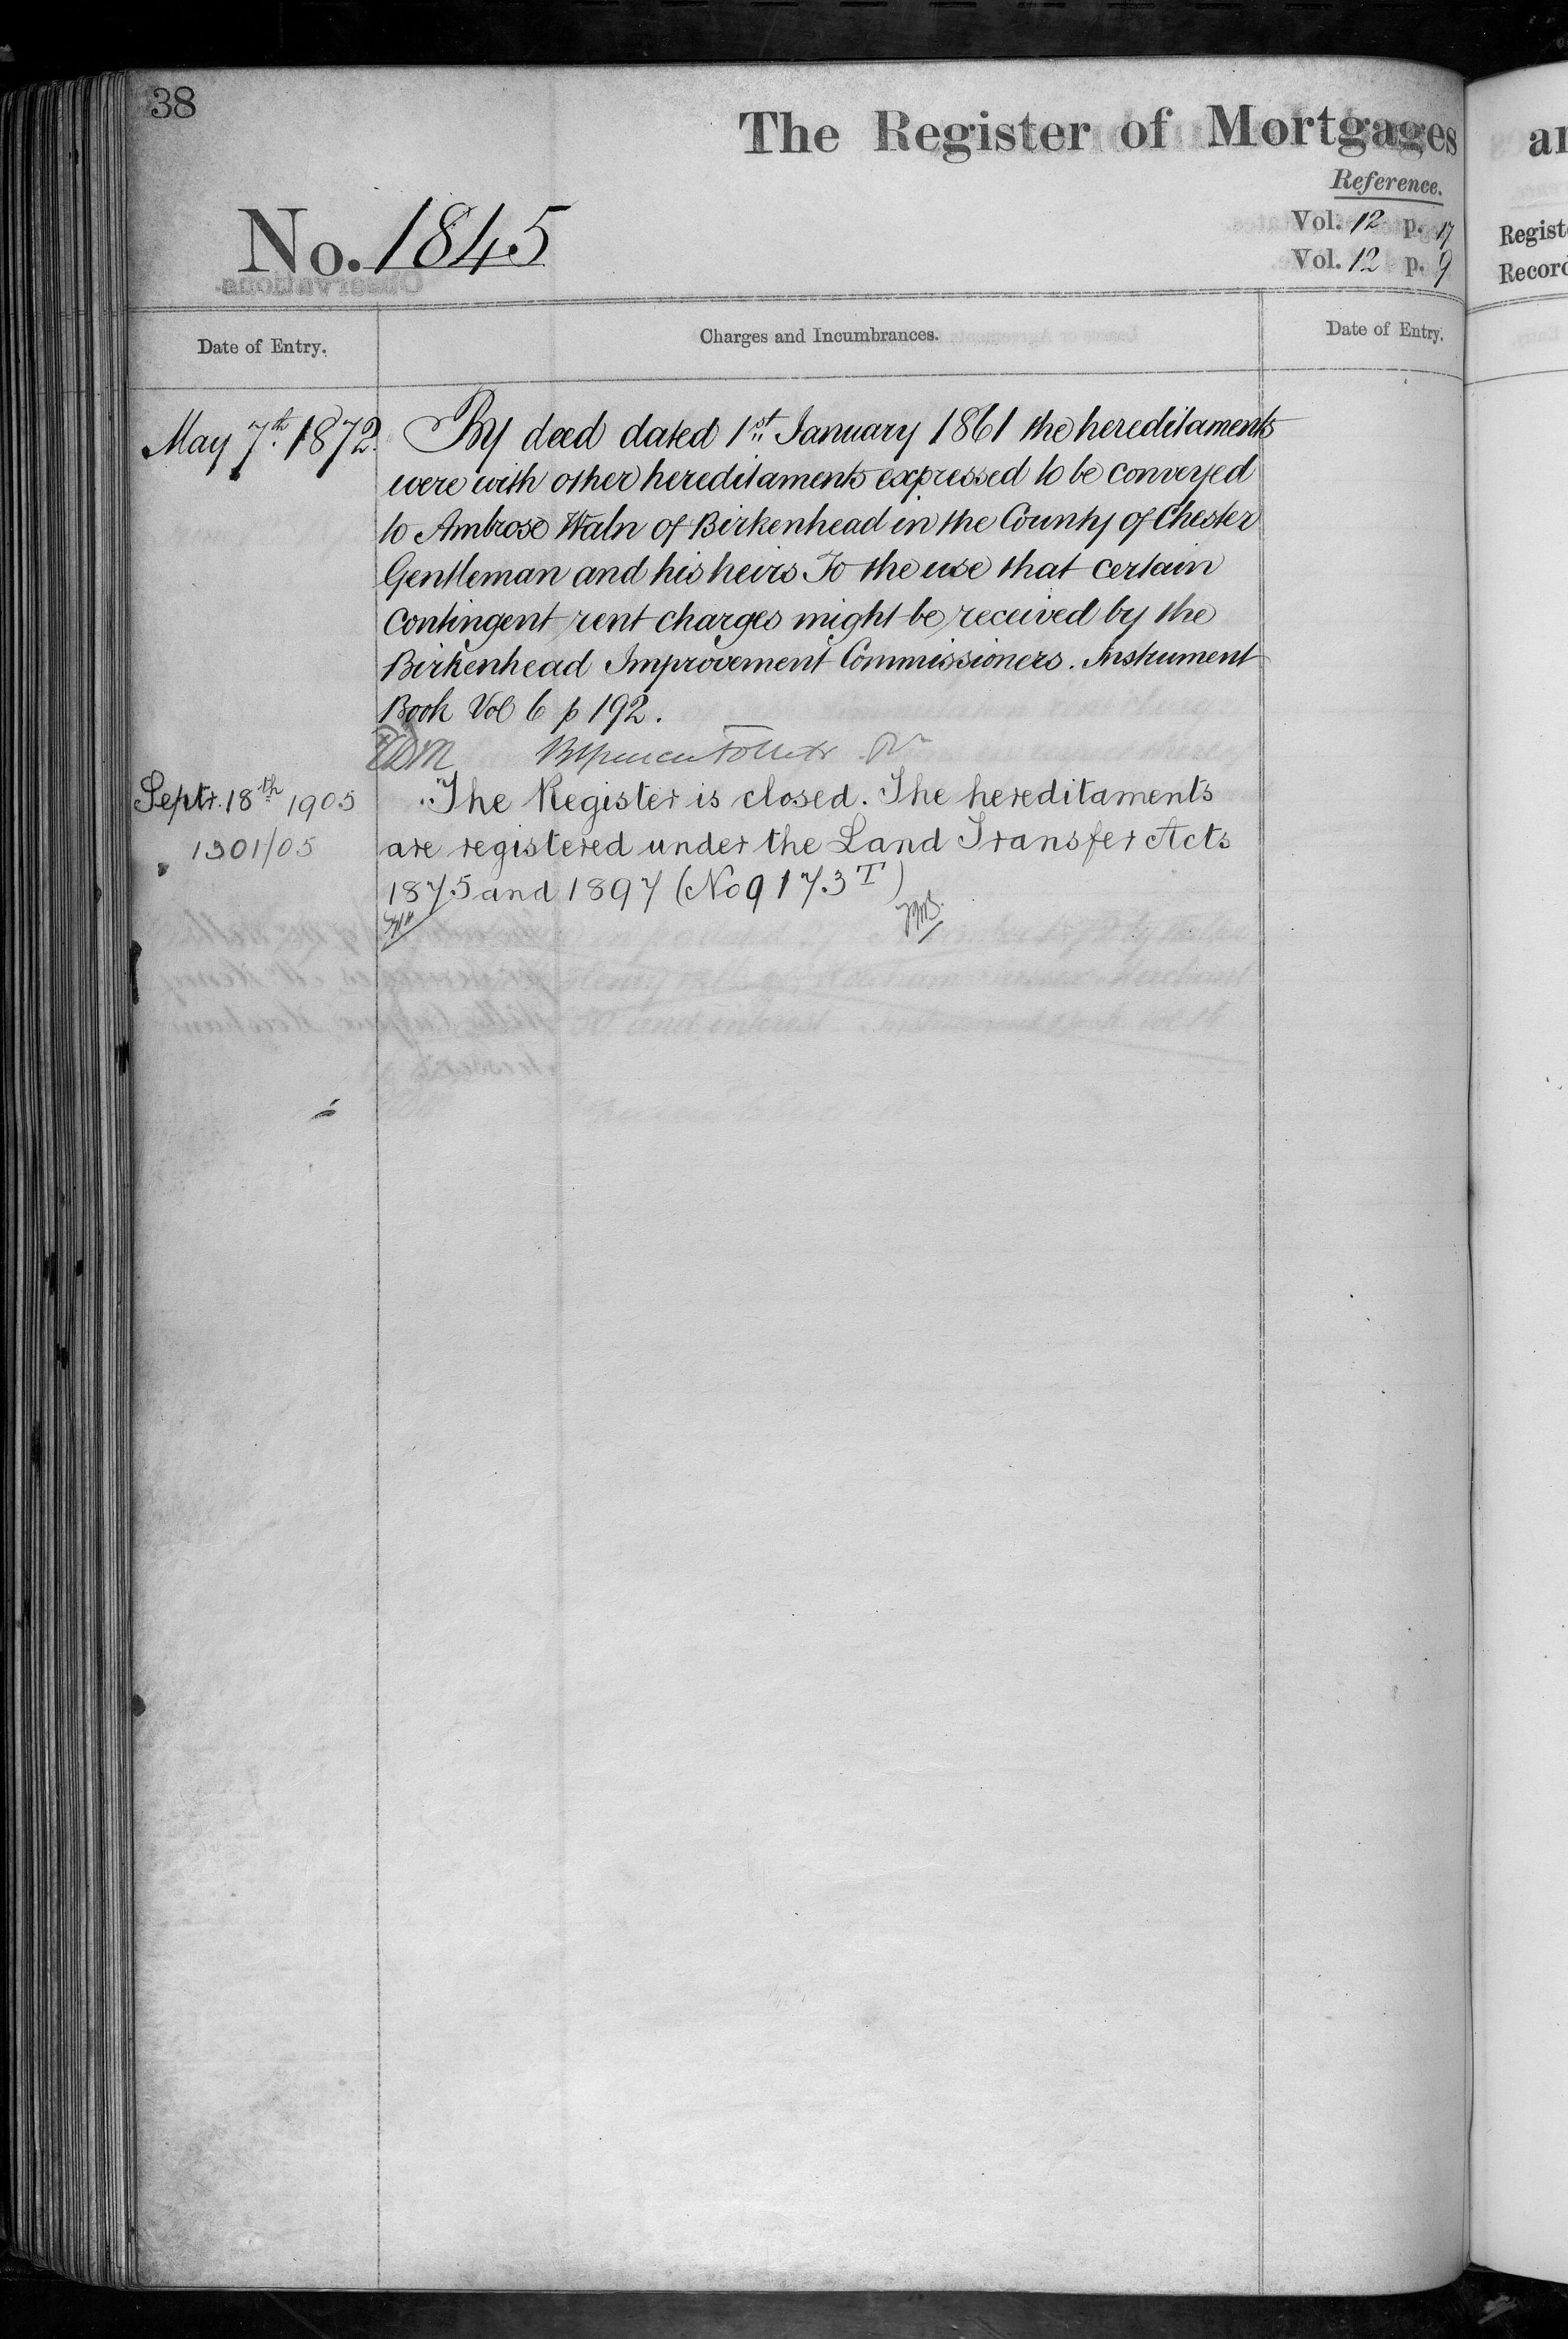 38
The Register of Mortgages
Reference.
No. 1845
Vol. 12 p. 17
Vol. 12 p. 9
Date of Entry.
Charges and Incumbrances.
Date of Entry.
May 7th. 1872.
By deed dated 1st January 1861 the hereditaments
were with other hereditaments expressed to be conveyed
to Ambrose Waln of Birkenhead in the County of Chester
Gentleman and his heirs To the use that certain
Contingent rent charges might be received by the
Birkenhead Improvement Commissioners. Instrument
Book Vol 6 p 192.
Septr. 18th 1905
1301/05
The Register is closed. The hereditaments
are registered under the Land Transfer Acts
1875 and 1897 (No 9173 T)
Regist
Record